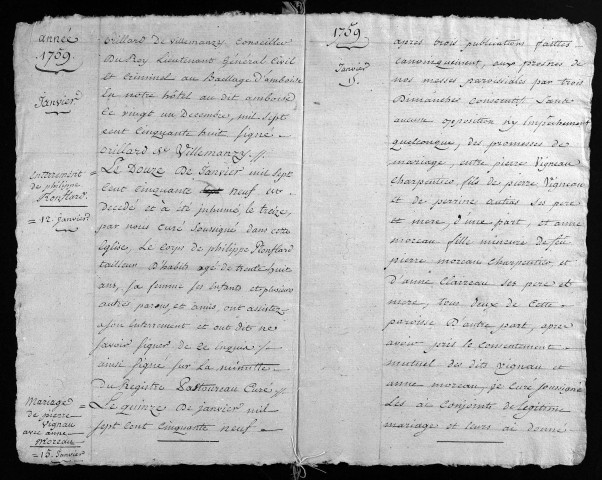 année
1759
Janvier
orillard de villemanzy, Conseiller
Du Roy Lieutenant General Civil
et Criminel au Baillage d'amboise
en notre hôtel au dit amboise
ce vingt un Decembre, mil sept
cent cinquante huit signé =
orillard De Villemanzy //.
enterrement
de philippe
Ronflard
= 12. janvier
= Le Douze De Janvier mil sept
Cent cinquante neuf est
Decedé et à été inhumé le treize,
par nous Curé soussigné dans cette
église, Le corps de philippe Ronflard
tailleur D'habits agé de trente huit
ans, sa femme ses enfants et plusieurs
autres parens, et amis, ont assistez
a son enterrement et ont dit ne
savoir signer de ce enquis //
ainsi signé sur La minutte
Du Registre Pastoureau Curé //
Mariage
de pierre
Vignau
avec anne
Moreau
= 15. Janvier
= Le quinze De janvier mil
sept cent cinquante neuf =
1759
Janvier
15.
apres trois publications faittes
canoniquement, aux prosnes de
nos messes paroissiales par trois
Dimanches consecutifs sans
aucune opposition ny Empêchement
quelconque, des promesses de
mariage, entre pierre Vigneau
Charpentier, fils de pierre Vigneau
et de perrine ses pere
et mere, d'une part, et anne
moreau fille mineure de feu
pierre moreau Charpentier et
d'anne Clarreau ses pere et
mere, tous deux de Cette =
paroisse D'autre part, apres
avoir pris le consentement =
mutuel des dits vignau et
anne moreau, je Curé soussigné
Les ai conjoints de legitime
mariage et leurs ai donné